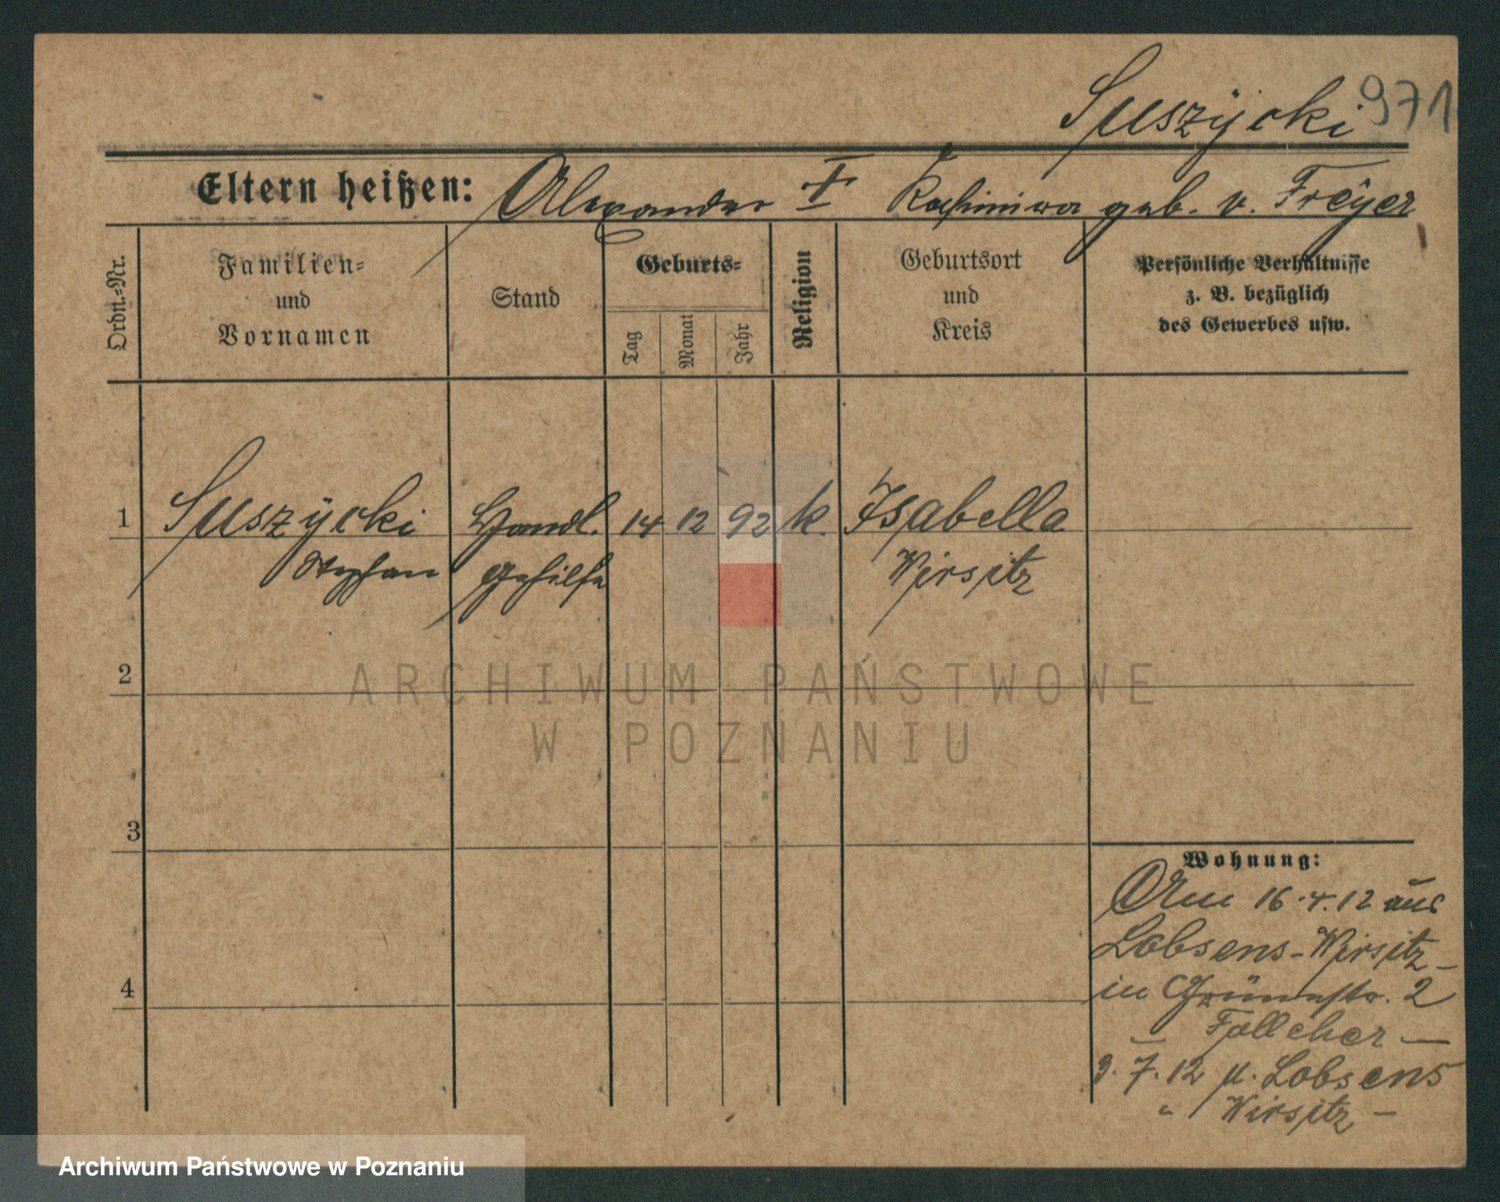 Suszÿcki 971
Eltern heißen: Alexander † Kasimiwa geb. v. Freÿer
Ordn.-Nr.
Familien-
und
Vornamen
Stand
Geburts-
Tag
Monat
Jahr
Religion
Geburtsort
und
Kreis
Persönliche Verhältnisse
z. B. bezüglich
des Gewerbes usw.
1 Suszÿcki Handl. 14 12 92 k. Isabella
Stephan gehilfe Wirsitz
2
ARCHIWUM PAŃSTWOWE
W POZNANIU
3
Wohnung:
Am 16.4.12 aus
Lobsens-Wirsitz
4
in Grünestr. 2
9.7.12 n. Lobsens
" Wirsitz -
Archiwum Państwowe w Poznaniu